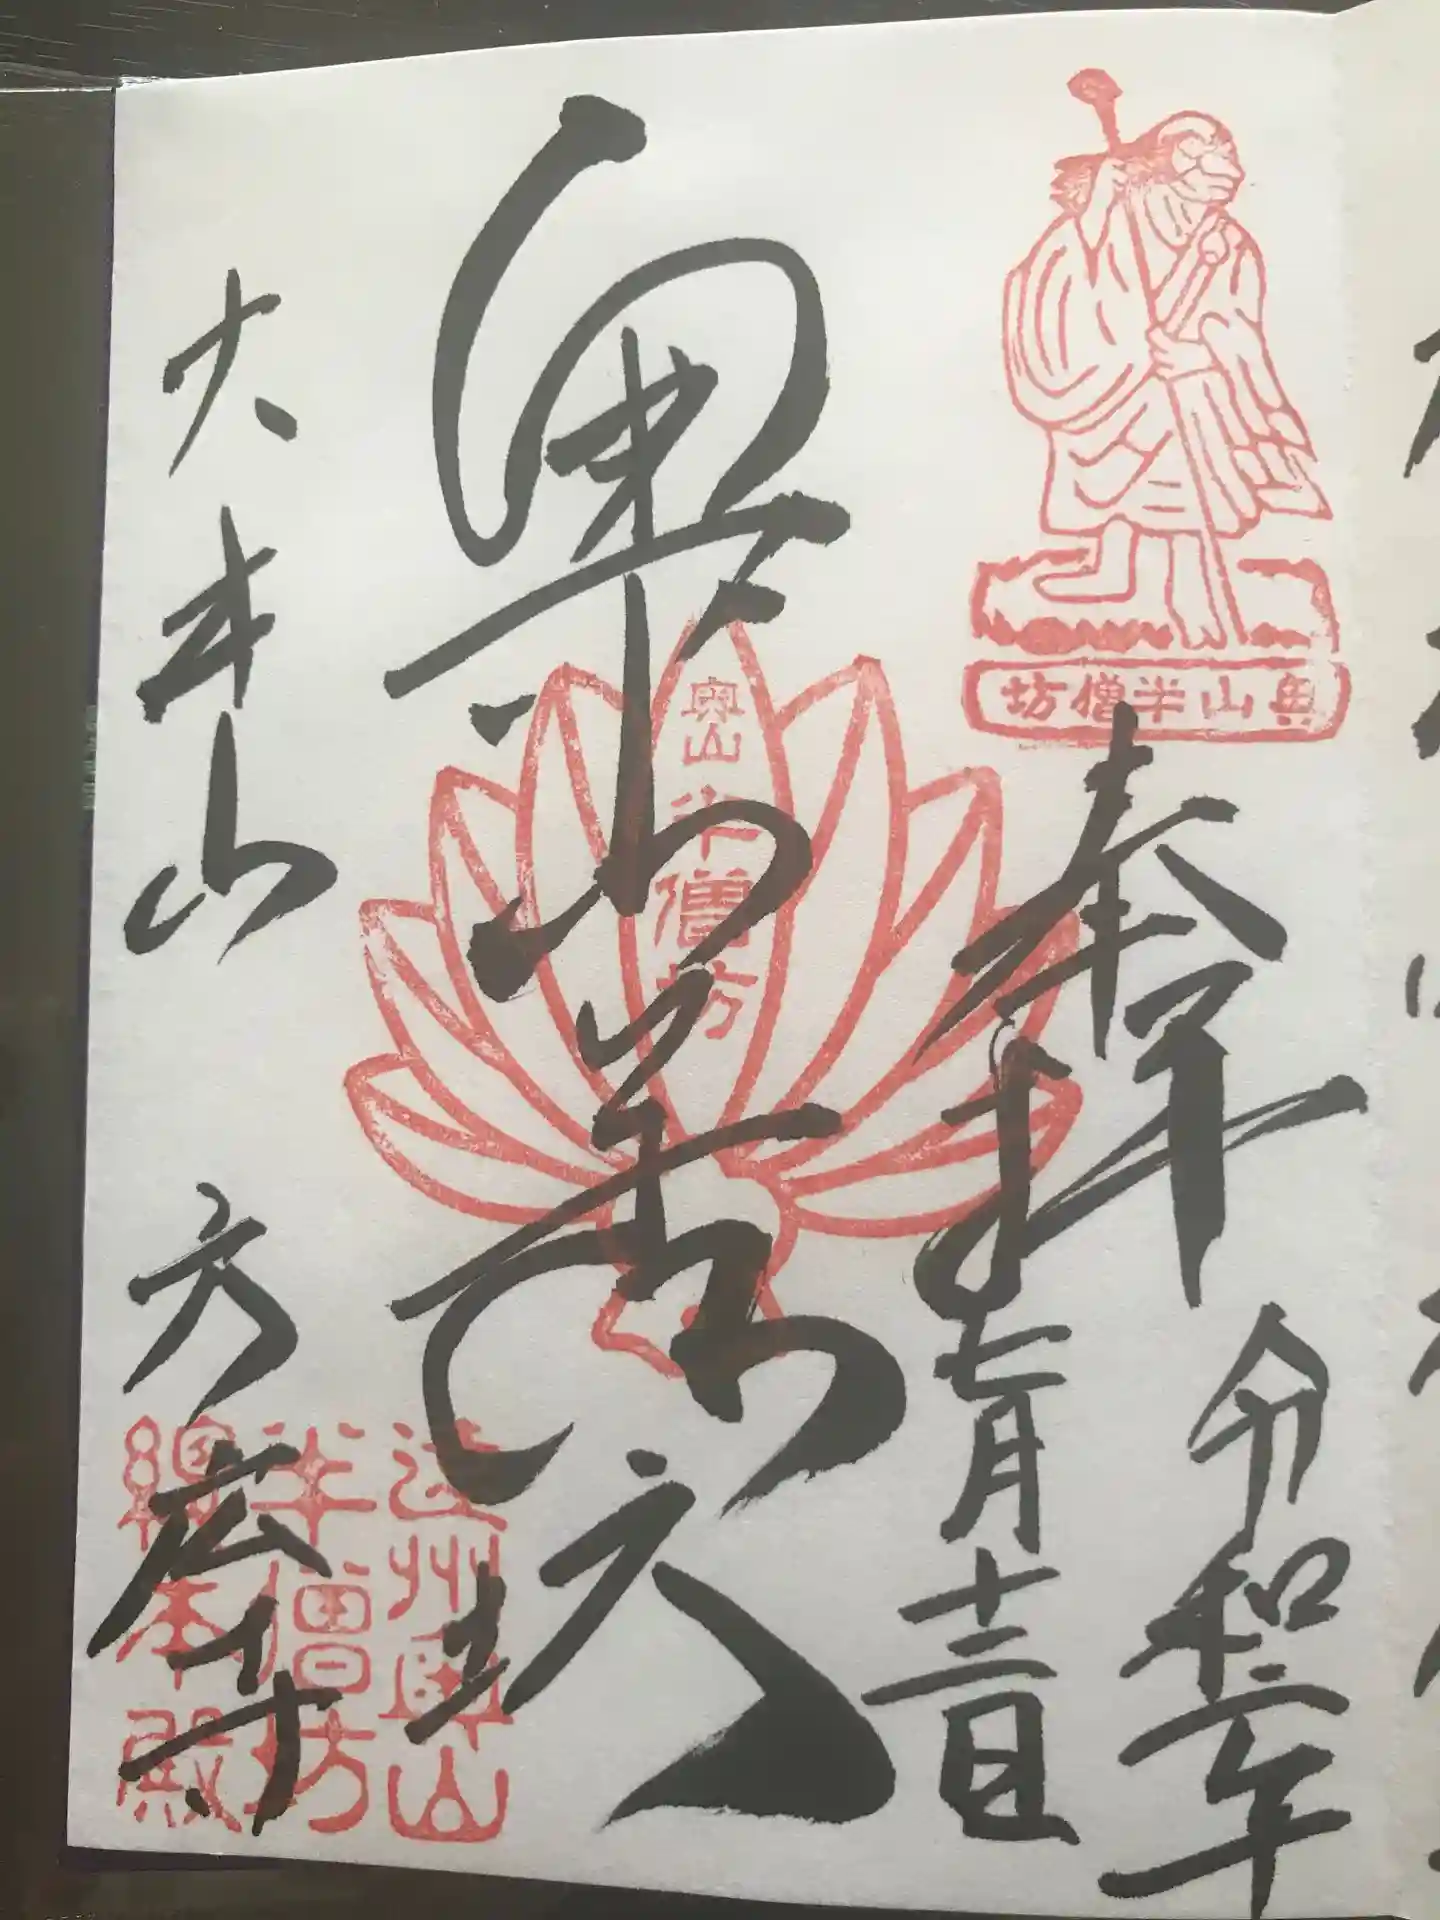 奥山半僧坊
奉拝
令和二年
七月十三日
奥山
半僧坊
奥山半僧坊
大本山
方広寺
遠州奥山
半僧坊
総本殿